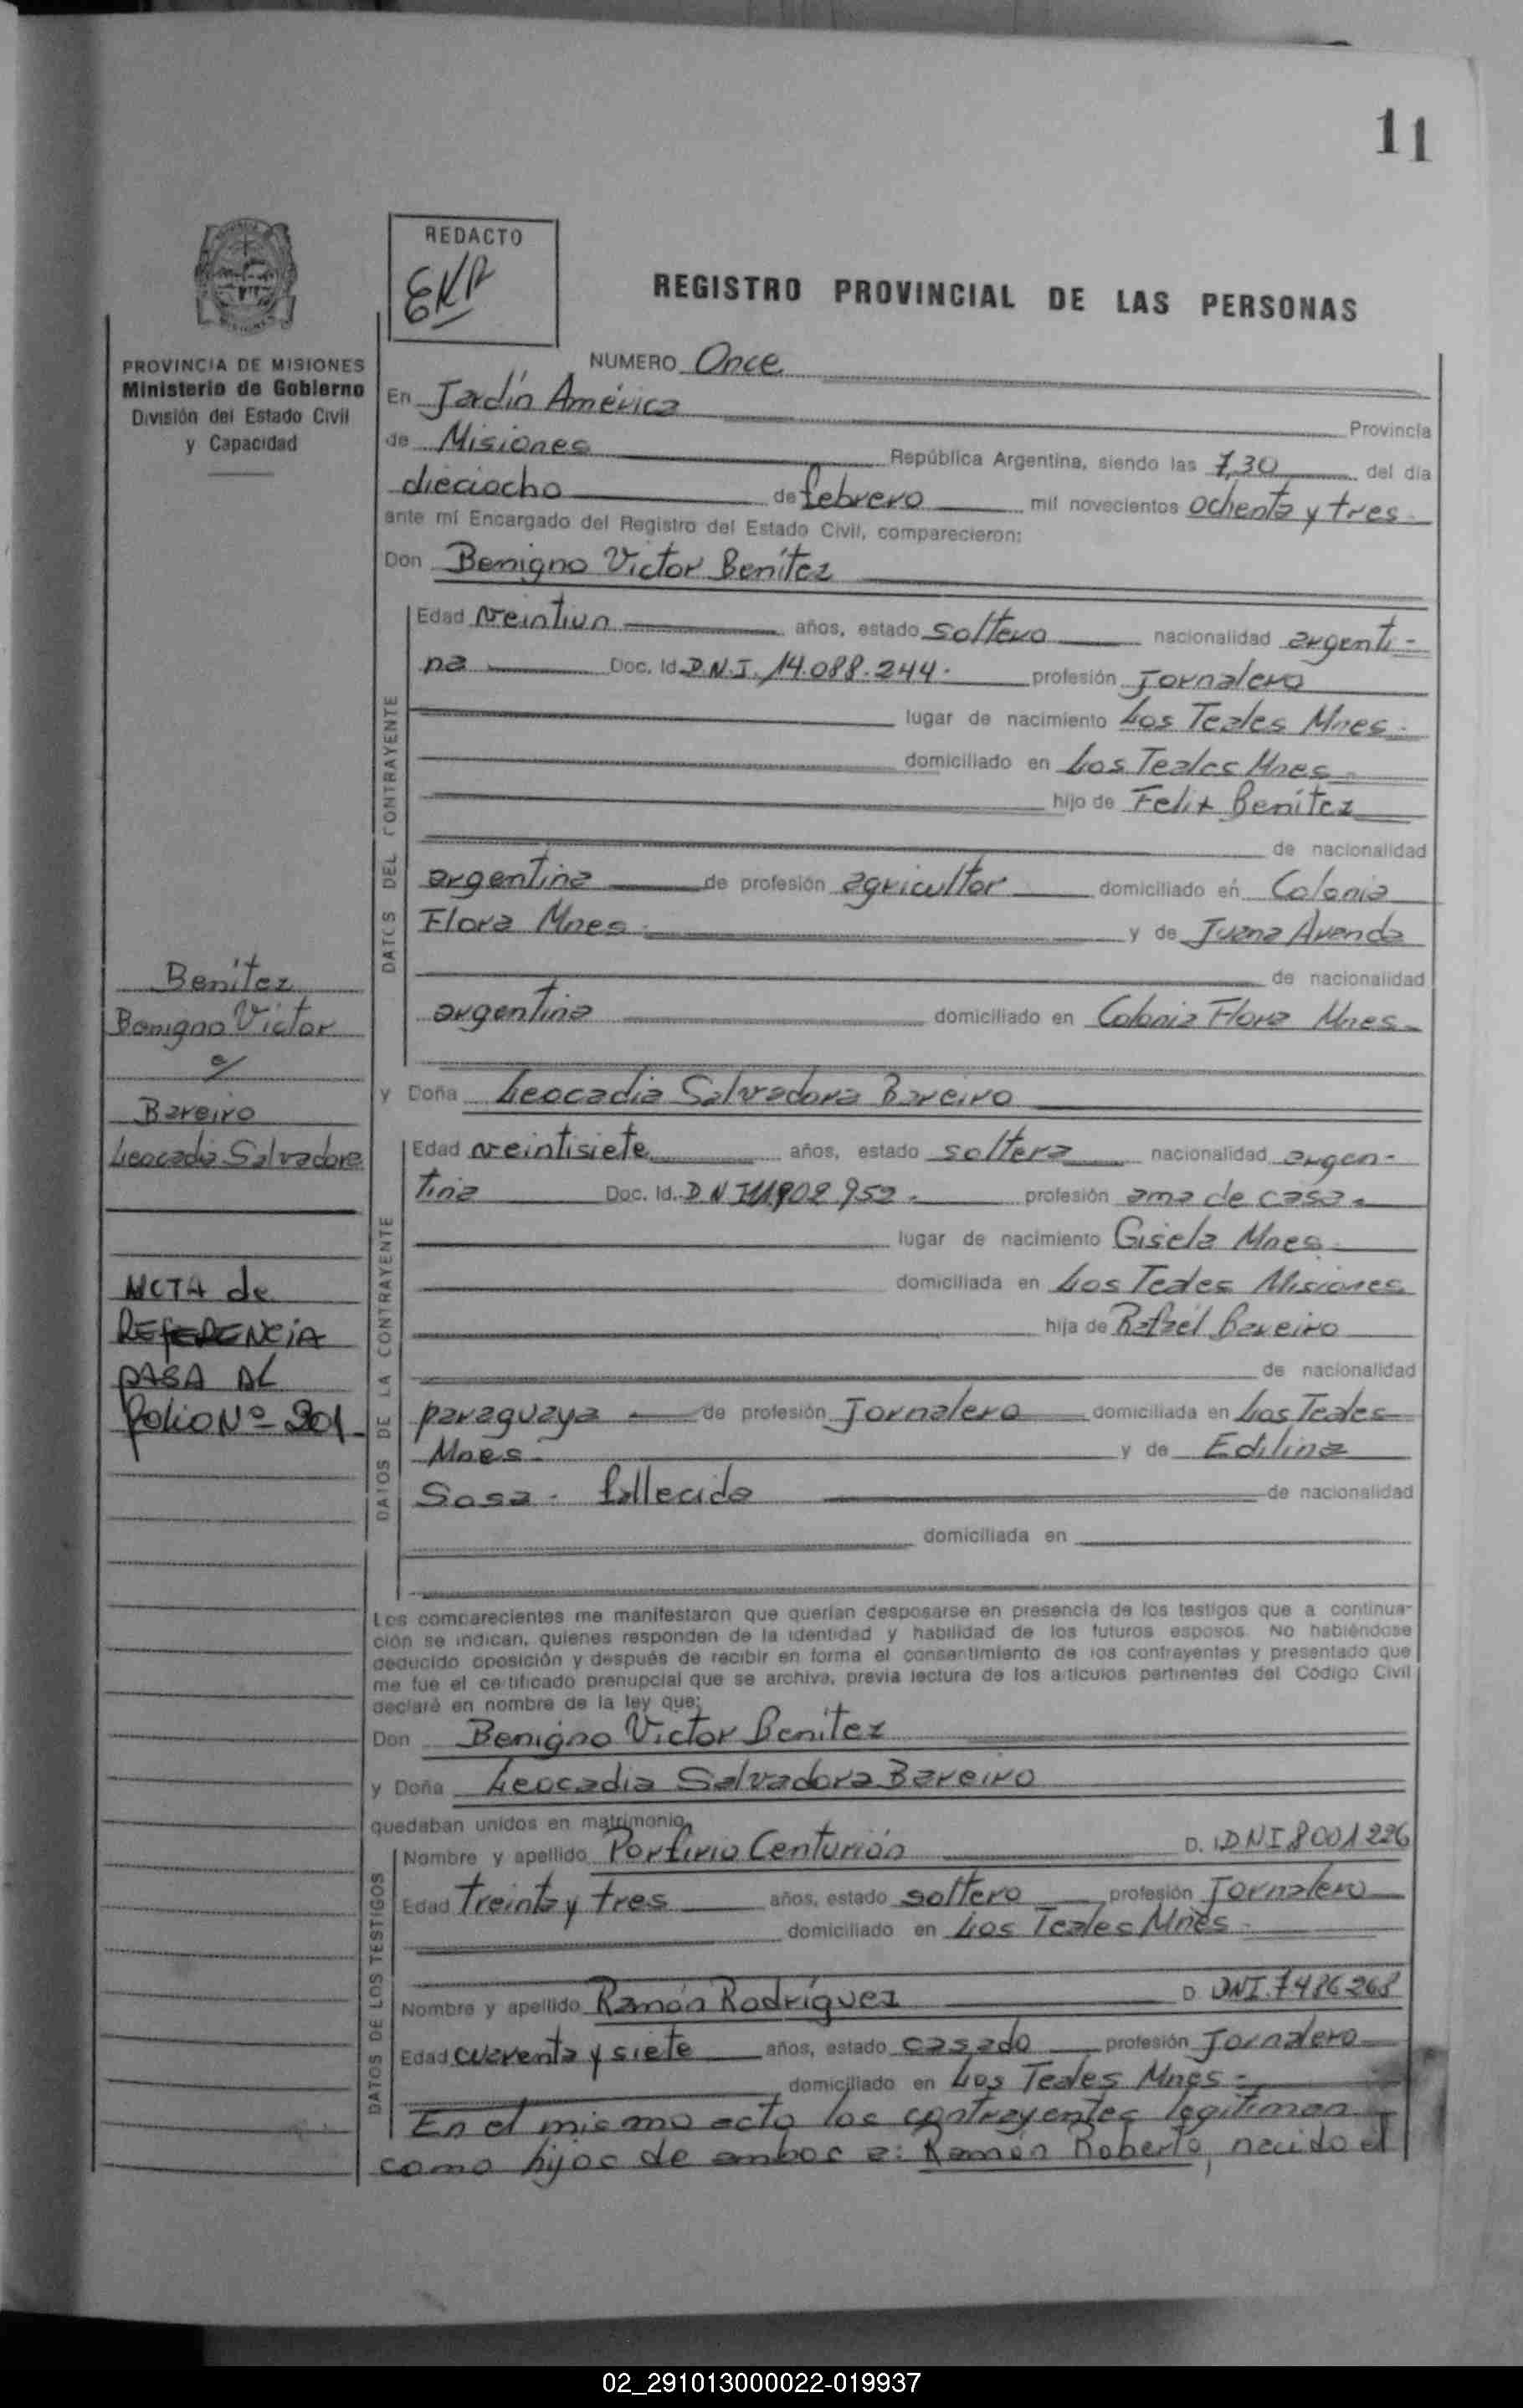 11
REDACTO
EKA
REGISTRO PROVINCIAL DE LAS PERSONAS
PROVINCIA DE MISIONES
Ministerio de Gobierno
División del Estado Civil
y Capacidad
NUMERO Once
En Jardín América
Provincia
de Misiones República Argentina, siendo las 7,30 del día
dieciocho de febrero mil novecientos ochenta y tres
ante mí Encargado del Registro del Estado Civil, comparecieron:
Don Benigno Victor Benítez
DATOS DEL CONTRAYENTE
Edad veintiun años, estado soltero nacionalidad argenti-
na Doc. Id. D.N.I. 14.088.244. profesión Jornalero
lugar de nacimiento Los Teales Mnes.
domiciliado en Los Teales Mnes.
hijo de Felix Benítez
de nacionalidad
argentina de profesión agricultor domiciliado en Colonia
Flora Mnes. y de Juana Avenda
de nacionalidad
argentina domiciliado en Colonia Flora Mnes.
Benítez
Benigno Victor
c/
Bareiro
Leocadia Salvadora
NOTA de
REFERENCIA
PASA AL
folio Nº 201
y Doña Leocadia Salvadora Bareiro
DATOS DE LA CONTRAYENTE
Edad veintisiete años, estado soltera nacionalidad argen-
tina Doc. Id. D N I 11.902.952. profesión ama de casa.
lugar de nacimiento Gisela Mnes
domiciliada en Los Teales Misiones
hija de Rafael Bareiro
de nacionalidad
paraguaya de profesión Jornalero domiciliada en Los Teales
Mnes. y de Edilina
Sosa. fallecida de nacionalidad
domiciliada en
Los comparecientes me manifestaron que querían desposarse en presencia de los testigos que a continua-
ción se indican, quienes responden de la identidad y habilidad de los futuros esposos. No habiéndose
deducido oposición y después de recibir en forma el consentimiento de los contrayentes y presentado que
me fue el certificado prenupcial que se archiva, previa lectura de los artículos pertinentes del Código Civil
declaré en nombre de la ley que:
Don Benigno Victor Benítez
y Doña Leocadia Salvadora Bareiro
quedaban unidos en matrimonio,
DATOS DE LOS TESTIGOS
Nombre y apellido Porfirio Centurión D. I. DNI 8001226
Edad treinta y tres años, estado soltero profesión Jornalero
domiciliado en Los Teales Mnes.
Nombre y apellido Ramón Rodríguez D DNI. 7486268
Edad cuarenta y siete años, estado casado profesión Jornalero
domiciliado en Los Teales Mnes.
En el mismo acto los contrayentes legitiman
como hijos de ambos a: Ramón Roberto, nacido el
02_291013000022-019937